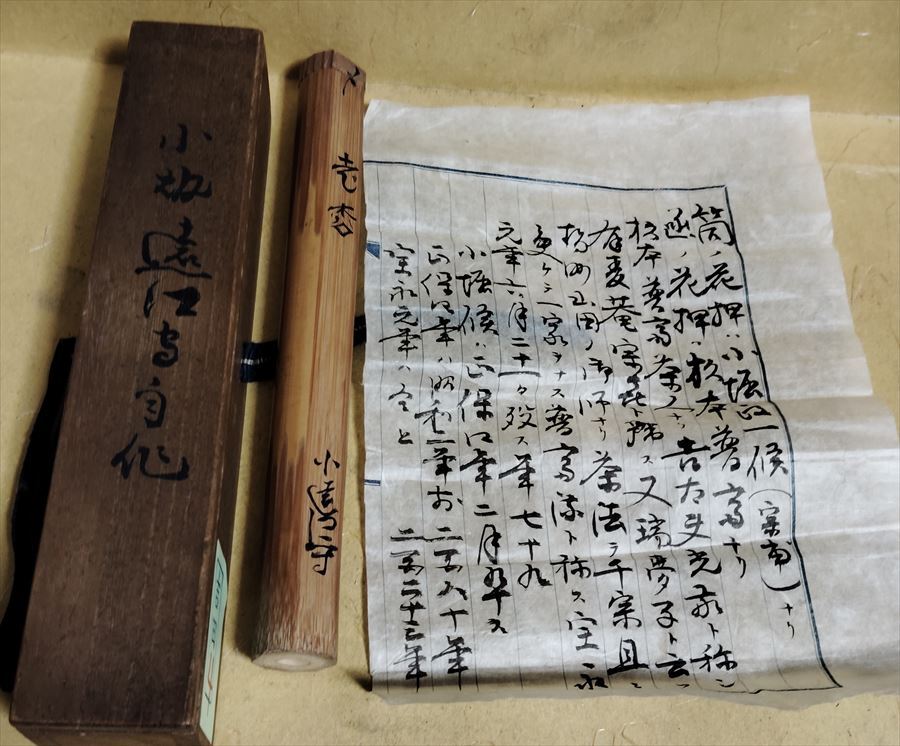 小堀遠江守自作
〆
老枩
小遠江守
筒ノ花押ハ小堀政一候(宗甫)ナリ
函ノ花押ハ杉本普斎ナリ
杉本普斎茶人ナリ吉大夫光敬ト称シ
有麦菴宗喜ト称ス又瑞夢子ト云フ
山田ノ御師ナリ茶法ヲ千宗旦ニ
受ケ一家ヲナス普斎流ト称ス宝永
元年六月二十一日歿ス年七十九
小堀候ハ正保四年二月歿ス
正保四年ハ昭和二年
宝永元年ハ 二百二十三年